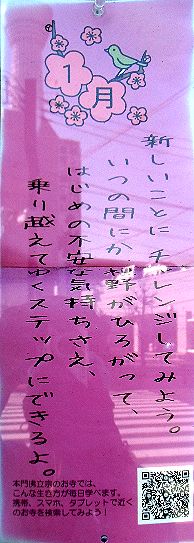 1月
新しいことにチャレンジしてみよう。
いつの間にか、視野がひろがって、
はじめの不安な気持ちさえ、
乗り越えてゆくステップにできるよ。
本門佛立宗のお寺では、
こんな生き方が毎日学べます。
携帯、スマホ、タブレットで近く
のお寺を検索してみよう！